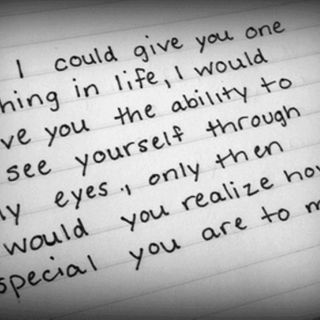 I could give you one
hing in life, I would
ve you the ability to
see yourself through
y eyes, only then
would you realize ho
special you are to m